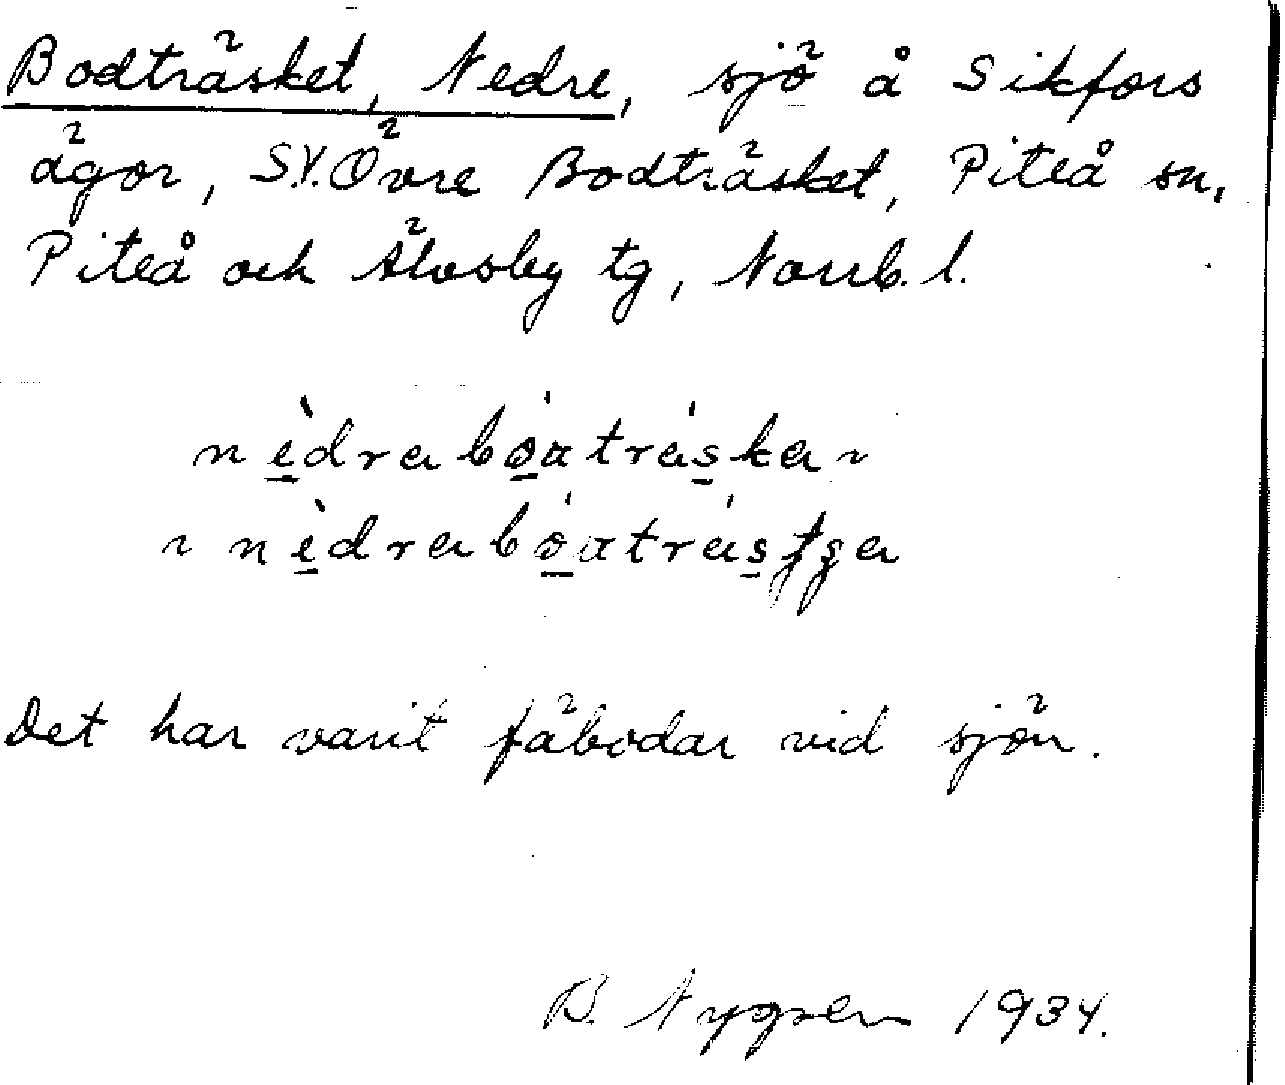 Bodträsket, Nedre, sjö å Sikfors
ägor, S.V. Övre Bodträsket, Piteå sn,
Piteå och Älvsby tg, Norrb. l.
nèdrabóatráska ~
~ nèdrabóatrásʄʂa
Det har varit fäbodar vid sjön.
B. Nygren 1934.